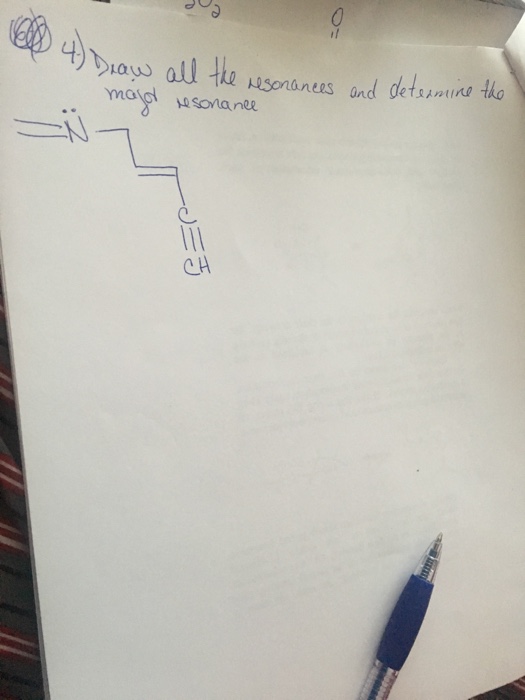 O
4) Draw all the resonances and determine the
major resonance
N
C
CH